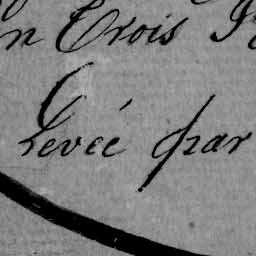 n Trois
Levée par